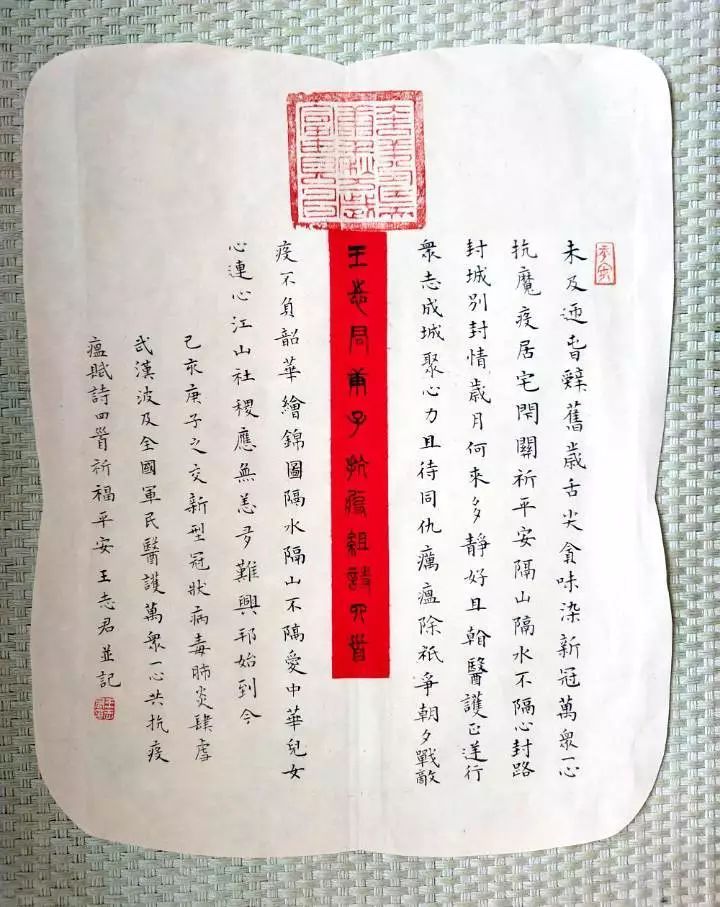 未及迎旾辤舊歲舌尖貪味染新冠萬衆一心
抗魔疫居宅閇關祈平安隔山隔水不隔心封路
封城别封情歲月何來多靜好且翰醫護正逆行
衆志成城聚心力且待同仇癘瘟除祇爭朝夕戰敵
王志君庚子抗疫組詩四首
疫不負韶華繪錦圖隔水隔山不隔愛中華兒女
心連心江山社稷應無恙多難興邦始到今
己亥庚子之交新型冠狀病毒肺炎肆虐
武漢波及全國軍民醫護萬衆一心共抗疫
瘟賦詩四首祈福平安王志君並記